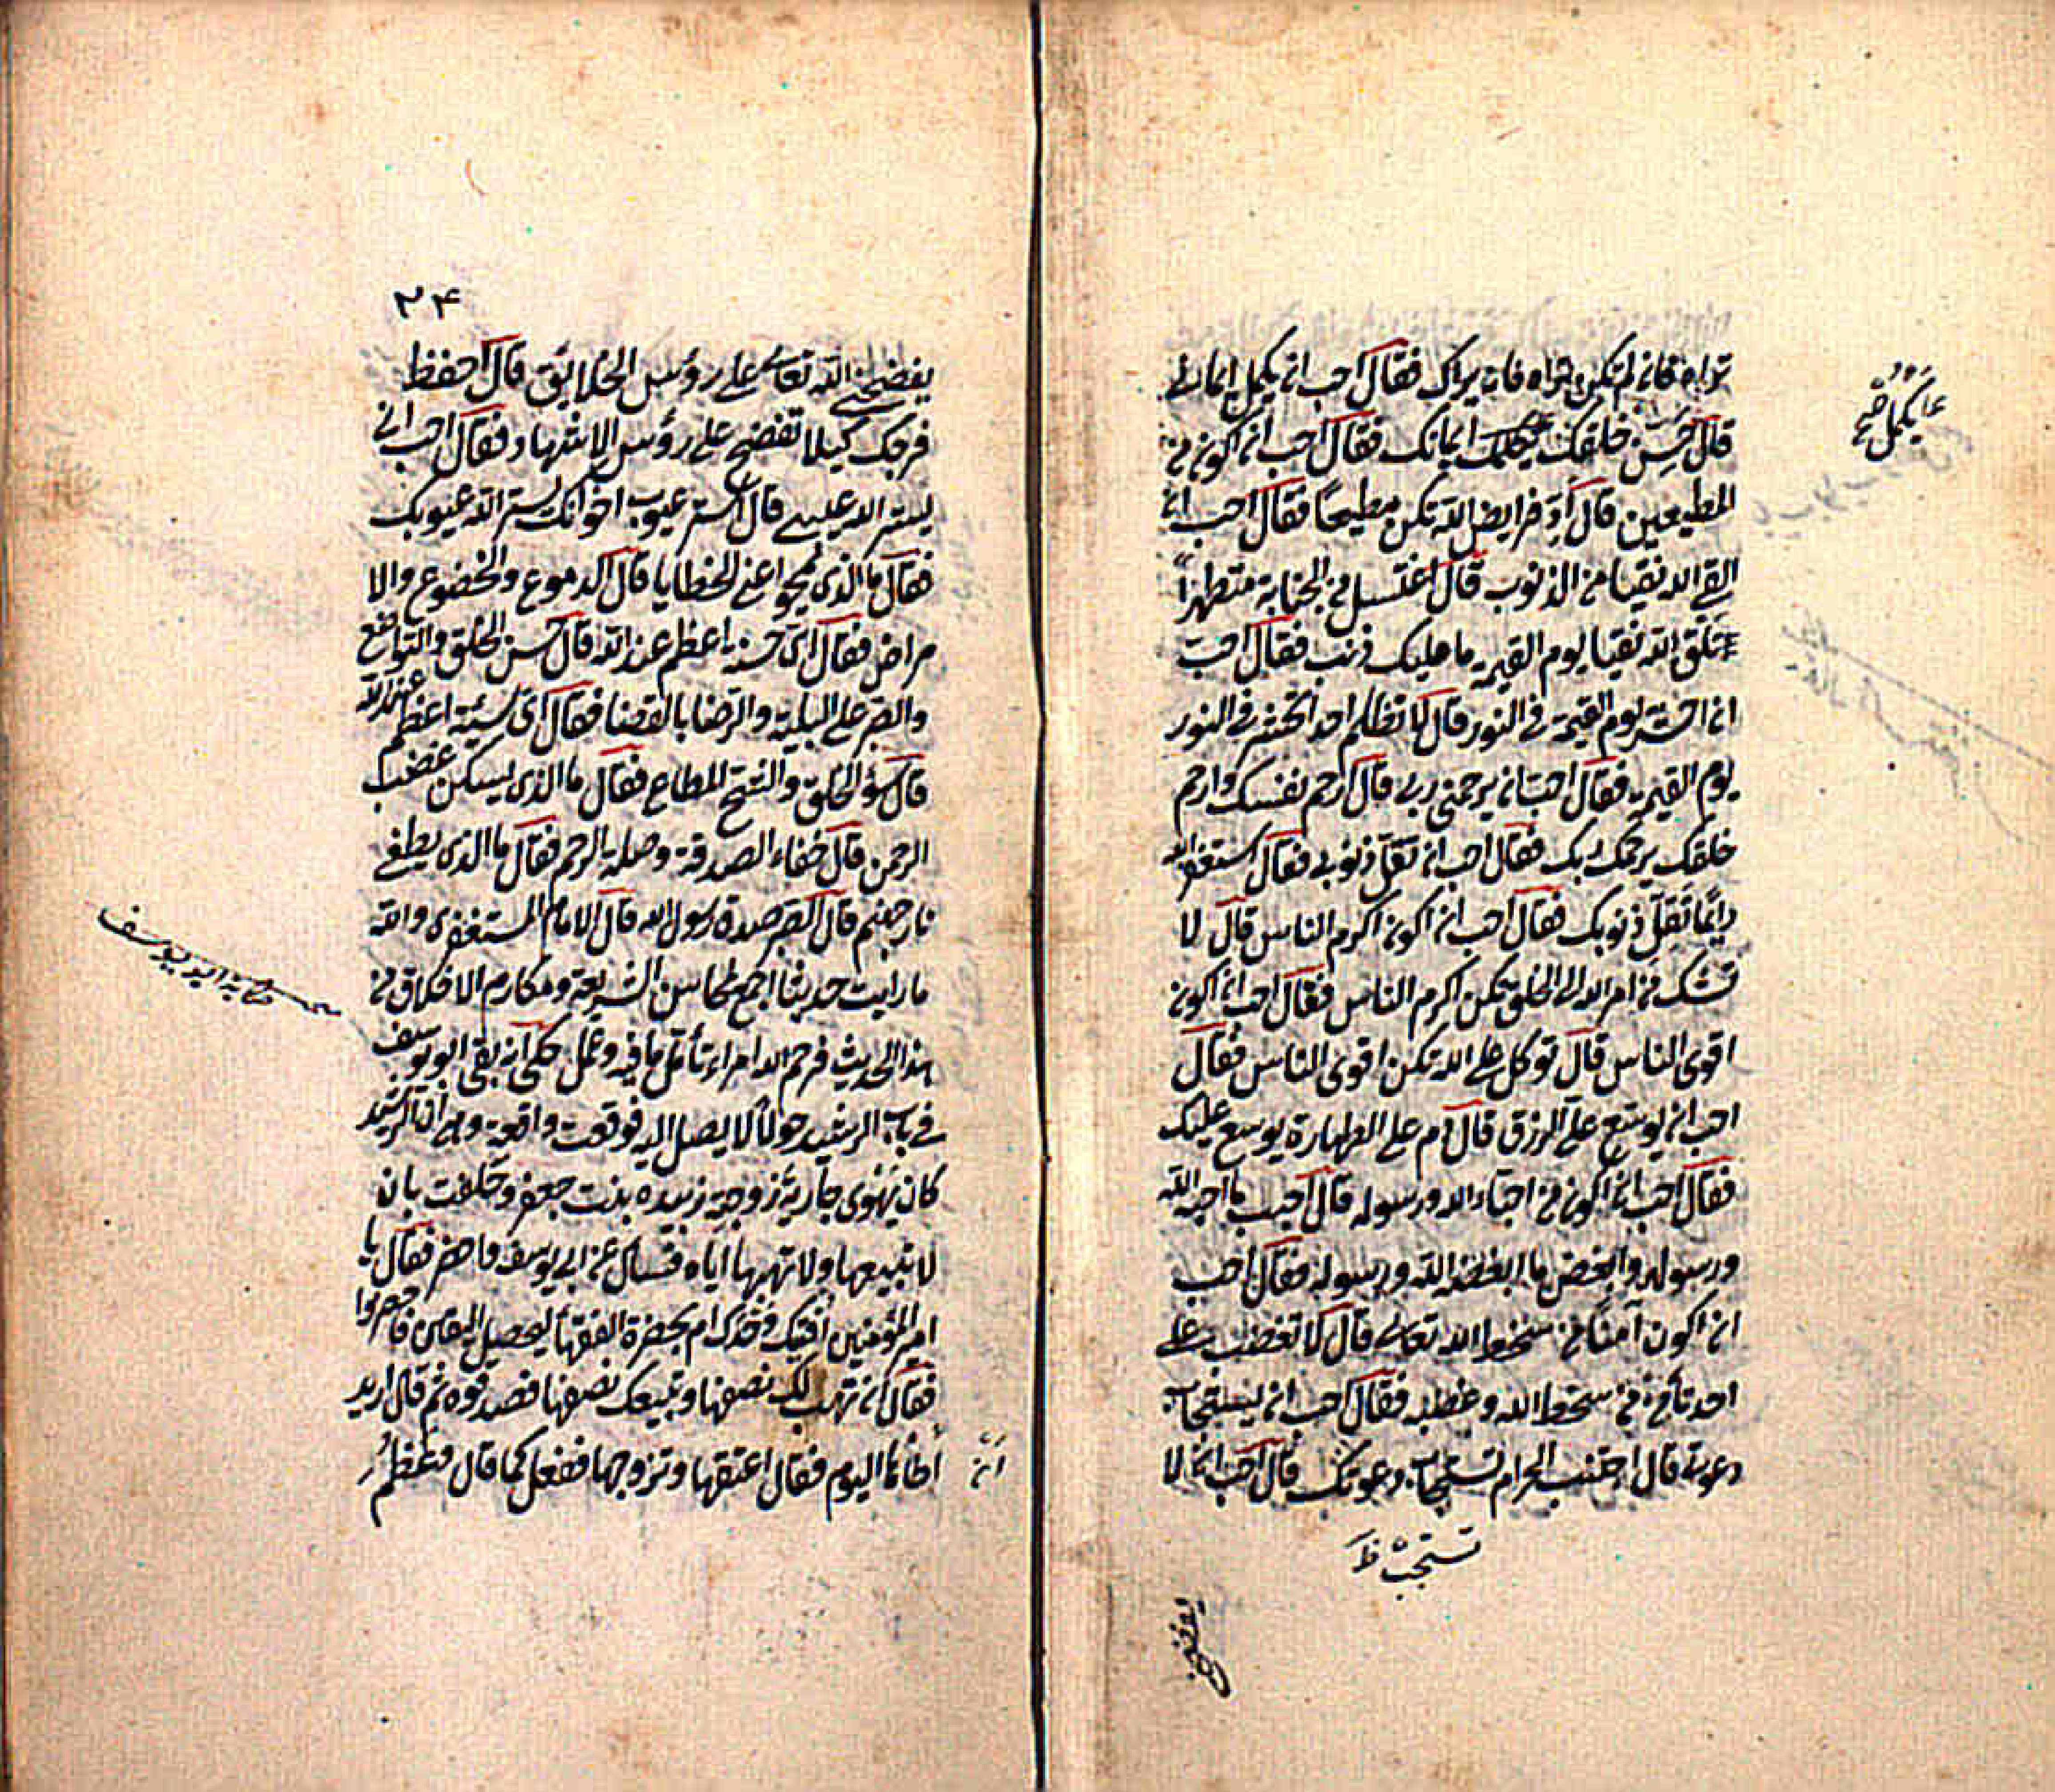 تراه فان لم تكن تراه فانه يراك فقال احب ان يكمل ايماني
قال حسن خلقك يكمل ايمانك فقال احب ان اكون من
المطيعين قال أدّ فرايض الله تكن مطيعاً فقال احب ان
القي الله نقيا من الذنوب قال اغتسل من الجنابة متطهراً
تلق الله نقيا يوم القيمة ما عليك ذنب فقال احب
ان احشر يوم القيمة في النور قال لا تظلم احدا تحشر في النور
يوم القيمة فقال احب ان يرحمني ربي قال ارحم نفسك وارحم
خلقك يرحمك ربك فقال احب ان تقل ذنوبي فقال استغفر الله
دايماً تقلّ ذنوبك فقال احب ان اكون اكرم الناس قال لا
تشك من امر الله الى الخلق تكن اكرم الناس فقال احب ان اكون
اقوى الناس قال توكل على الله تكن اقوى الناس فقال
احب ان يوسّع عليّ الرزق قال دم على الطهارة يوسع عليك
فقال احب ان اكون من احباء الله ورسوله قال احبب ما احبه الله
ورسوله وابغض ما ابغضه الله ورسوله فقال احب
ان اكون آمناً من سخط الله تعالى قال لا تغضب على
احد تأمن من سخط الله وغضبه فقال احب ان يستجاب
دعوتي قال اجتنب الحرام تستجاب دعوتك قال احب ان لا
تستجب ظ
يفضحني
يكمل
٢٤
يفضحني الله تعالى على رؤس الخلايق قال احفظ
فرجك كيلا تفتضح على رؤس الاشهاد فقال احب ان
يستر الله عليّ عيوبي قال استر عيوب اخوانك يستر الله عيوبك
فقال ما الذي يمحوا عني الخطايا قال الدموع والخضوع والا
مراض فقال اي حسنة اعظم عند الله قال حسن الخلق والتواضع
والصبر على البلية والرضا بالقضا فقال اي سيئة اعظم عند الله
قال سؤ الخلق والشح المطاع فقال ما الذي يسكن غضب
الرحمن قال اخفاء الصدقة وصلة الرحم فقال ما الذي يطفي
نار جهنم قال الصبر صدق رسول الله قال الامام المستغفري والله
ما رايت حديثا اجمع لمحاسن الشريعة ومكارم الاخلاق من
هذا الحديث فرحم الله امراء تأمل ما فيه وعمل حكي انه بقي ابو يوسف
في باب الرشيد حولاً لا يصل اليه فوقعت واقعة وهي ان الرشيد
كان يهوى جارية زوجته زبيده بنت جعفر وحلفت بان
لا تبيعها ولا تهبها اياه فسال عن ابي يوسف فاحضر فقال يا
امير المؤمنين افتيك وحدك ام بحضرة الفقها ليحصل اليقين فاحضروا
فقال ان تهب لك نصفها وتبيعك نصفها فصدقوه ثم قال اريد
ان اطأها اليوم فقال اعتقها وتزوجها ففعل كما قال فعظم
حكاية ابو يوسف
ان